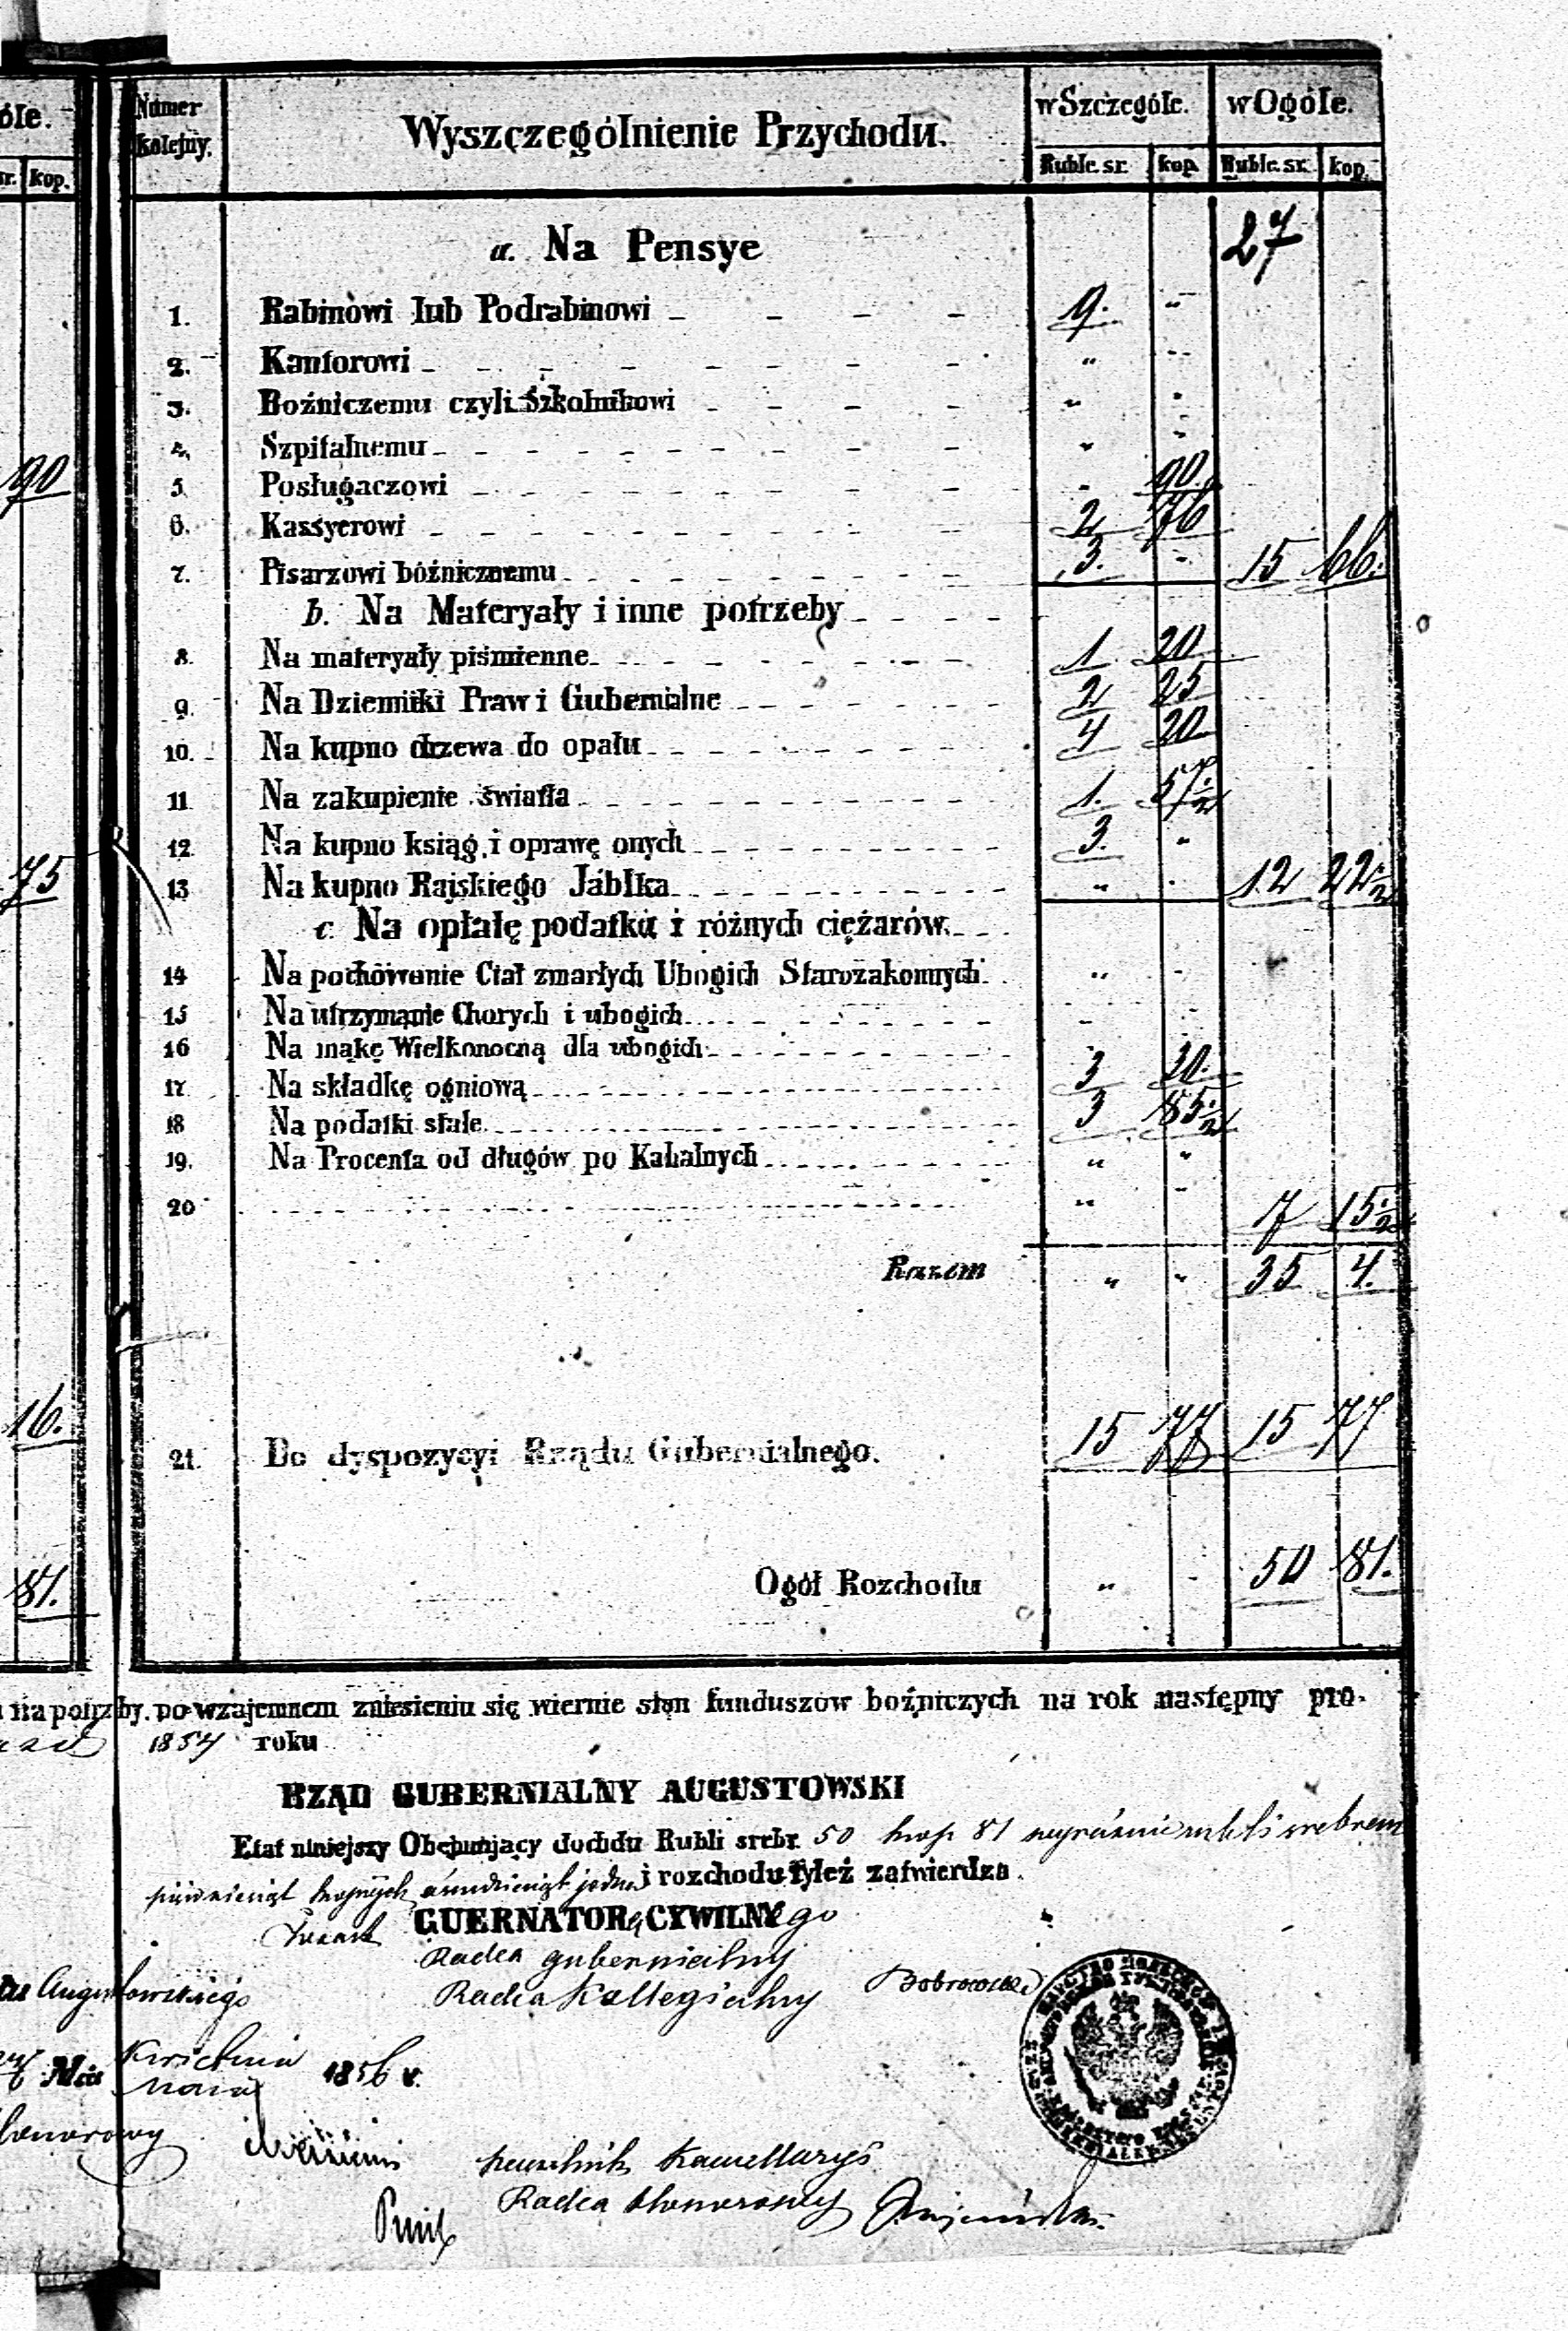 óle.
sr. kop.
90
75
16.
81.
Numer kolejny. Wyszczególnienie Przychodu. w Szczególe. w Ogóle.
Ruble. sr. kop. Ruble. sr. kop.
a. Na Pensye 27
1. Rabinowi lub Podrabinowi 9. "
2. Kantorowi " "
3. Boźniczemu czyli Szkolnikowi " "
4. Szpitalnemu " "
5. Posługaczowi - 90.
6. Kassyerowi 2 76
7. Pisarzowi bóźnicznemu 3. - 15 66.
b. Na Materyały i inne potrzeby
8. Na materyały piśmienne 1. 20
9. Na Dzienniki Praw i Gubernialne 2 25
10. Na kupno drzewa do opału 4 20
11 Na zakupienie światła 1. 57 1/2
12 Na kupno ksiąg i oprawę onych 3. "
13 Na kupno Rajskiego Jabłka " " 12 22 1/2
c. Na opłatę podatku i różnych ciężarów
14 Na pochowanie Ciał zmarłych Ubogich Starozakonnych " -
15 Na utrzymanie Chorych i ubogich - -
16 Na mąkę Wielkonocną dla ubogich - -
17 Na składkę ogniową 3 30.
18 Na podatki stałe 3 85 1/2
19. Na Procenta od długów po Kahalnych " "
20 " " 7 15 1/2
Razem " " 35 4.
21. Do dyspozycyi Rządu Gubernialnego. 15 77 15 77
Ogół Rozchodu " - 50 81.
na potrzeby po wzajemnem zniesieniu się wiernie stan funduszów boźniczych na rok następny pro.
1854 roku
RZĄD GUBERNIALNY AUGUSTOWSKI
Etat niniejszy Obejmujący dochdu Rubli srebr. 50 kop 81 wyraźnie rubli srebrem
pięćdziesiąt kopiejek ośmdziesiąt jeden i rozchodu tyleż zatwierdza.
GUERNATORA CYWILNEgo
Radca gubernialny
Radca Kollegialny Dobrowolski
Augustowskiego
Kwietnia
Mca Maja 1856 r.
Honorowy
Naczelnik Kancellaryi
Radca Honorowy